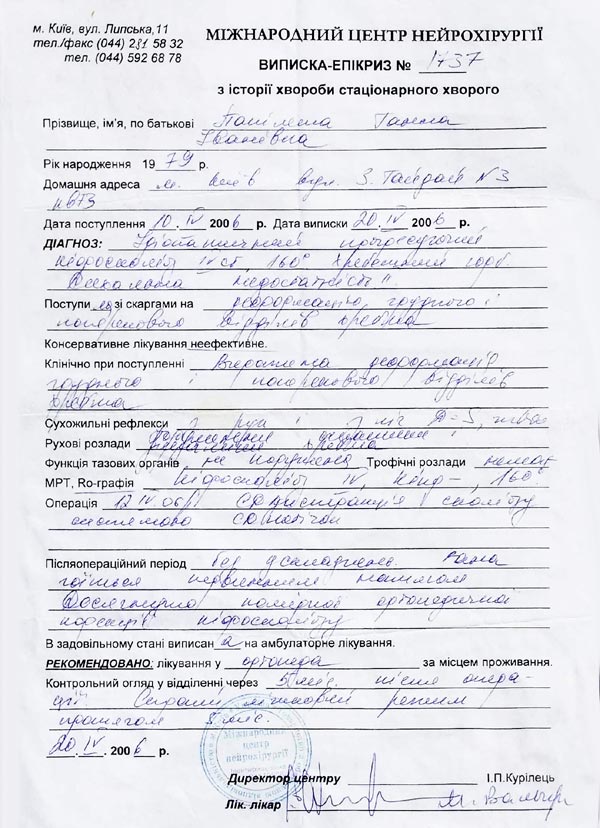 м. Київ, вул. Липська,11
тел./факс (044) 281 58 32
тел. (044) 592 68 78
МІЖНАРОДНИЙ ЦЕНТР НЕЙРОХІРУРГІЇ
ВИПИСКА-ЕПІКРИЗ № 1737
з історії хвороби стаціонарного хворого
Прізвище, ім'я, по батькові Ганна
Іванівна
Рік народження 1979 р.
Домашна адреса м. Київ вул. З. Гайдай №3
кв73
Дата поступления 10.IV 2006 р. Дата виписки 20.IV 2006 р.
ДІАГНОЗ: Ідіопатичний прогресуючий
кіфосколіоз IV ст, 160° Хребетний горб.
Дихальна недостатність II.
Поступила зі скаргами на деформацію грудного і
поперекового відділів хребта
Консервативне лікування неефективне.
Клінічно при поступленні Виражена деформація
грудного і поперекового відділів
хребта
Сухожильні рефлекси з рук і з ніг D=S, живі
Рухові розлади обмеження
Функція тазових органів не порушена Трофічні розлади немає
МРТ, Ro-графія Кіфосколіоз IV, 160°
Операція 12.IV.06р дистракція сколіозу
системою
Післяопераційний період Без ускладнень. Рана
гоїться первинним натягом
Досягнуто помірної ортопедичної
корекції кіфосколіозу
В задовільному стані виписана на амбулаторне лікування.
РЕКОМЕНДОВАНО: лікування у ортопеда за місцем проживання.
Контрольний огляд у відділенні через 5 міс. після опера-
ції режим
протягом 5 міс.
20.IV.2006 р.
Міжнародний
центр
нейрохірургії
Директор центру І.П.Курілець
Лік. лікар